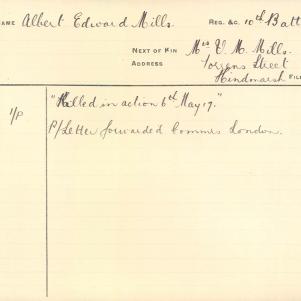 NAME Albert Edward Mills. REG. &C. 10th Batt
NEXT OF KIN Mrs V. M. Mills.
ADDRESS Torrens Street
Hindmarsh FILE
1/P "Killed in action 6th May 17."
P/Letter forwarded Commrs London.